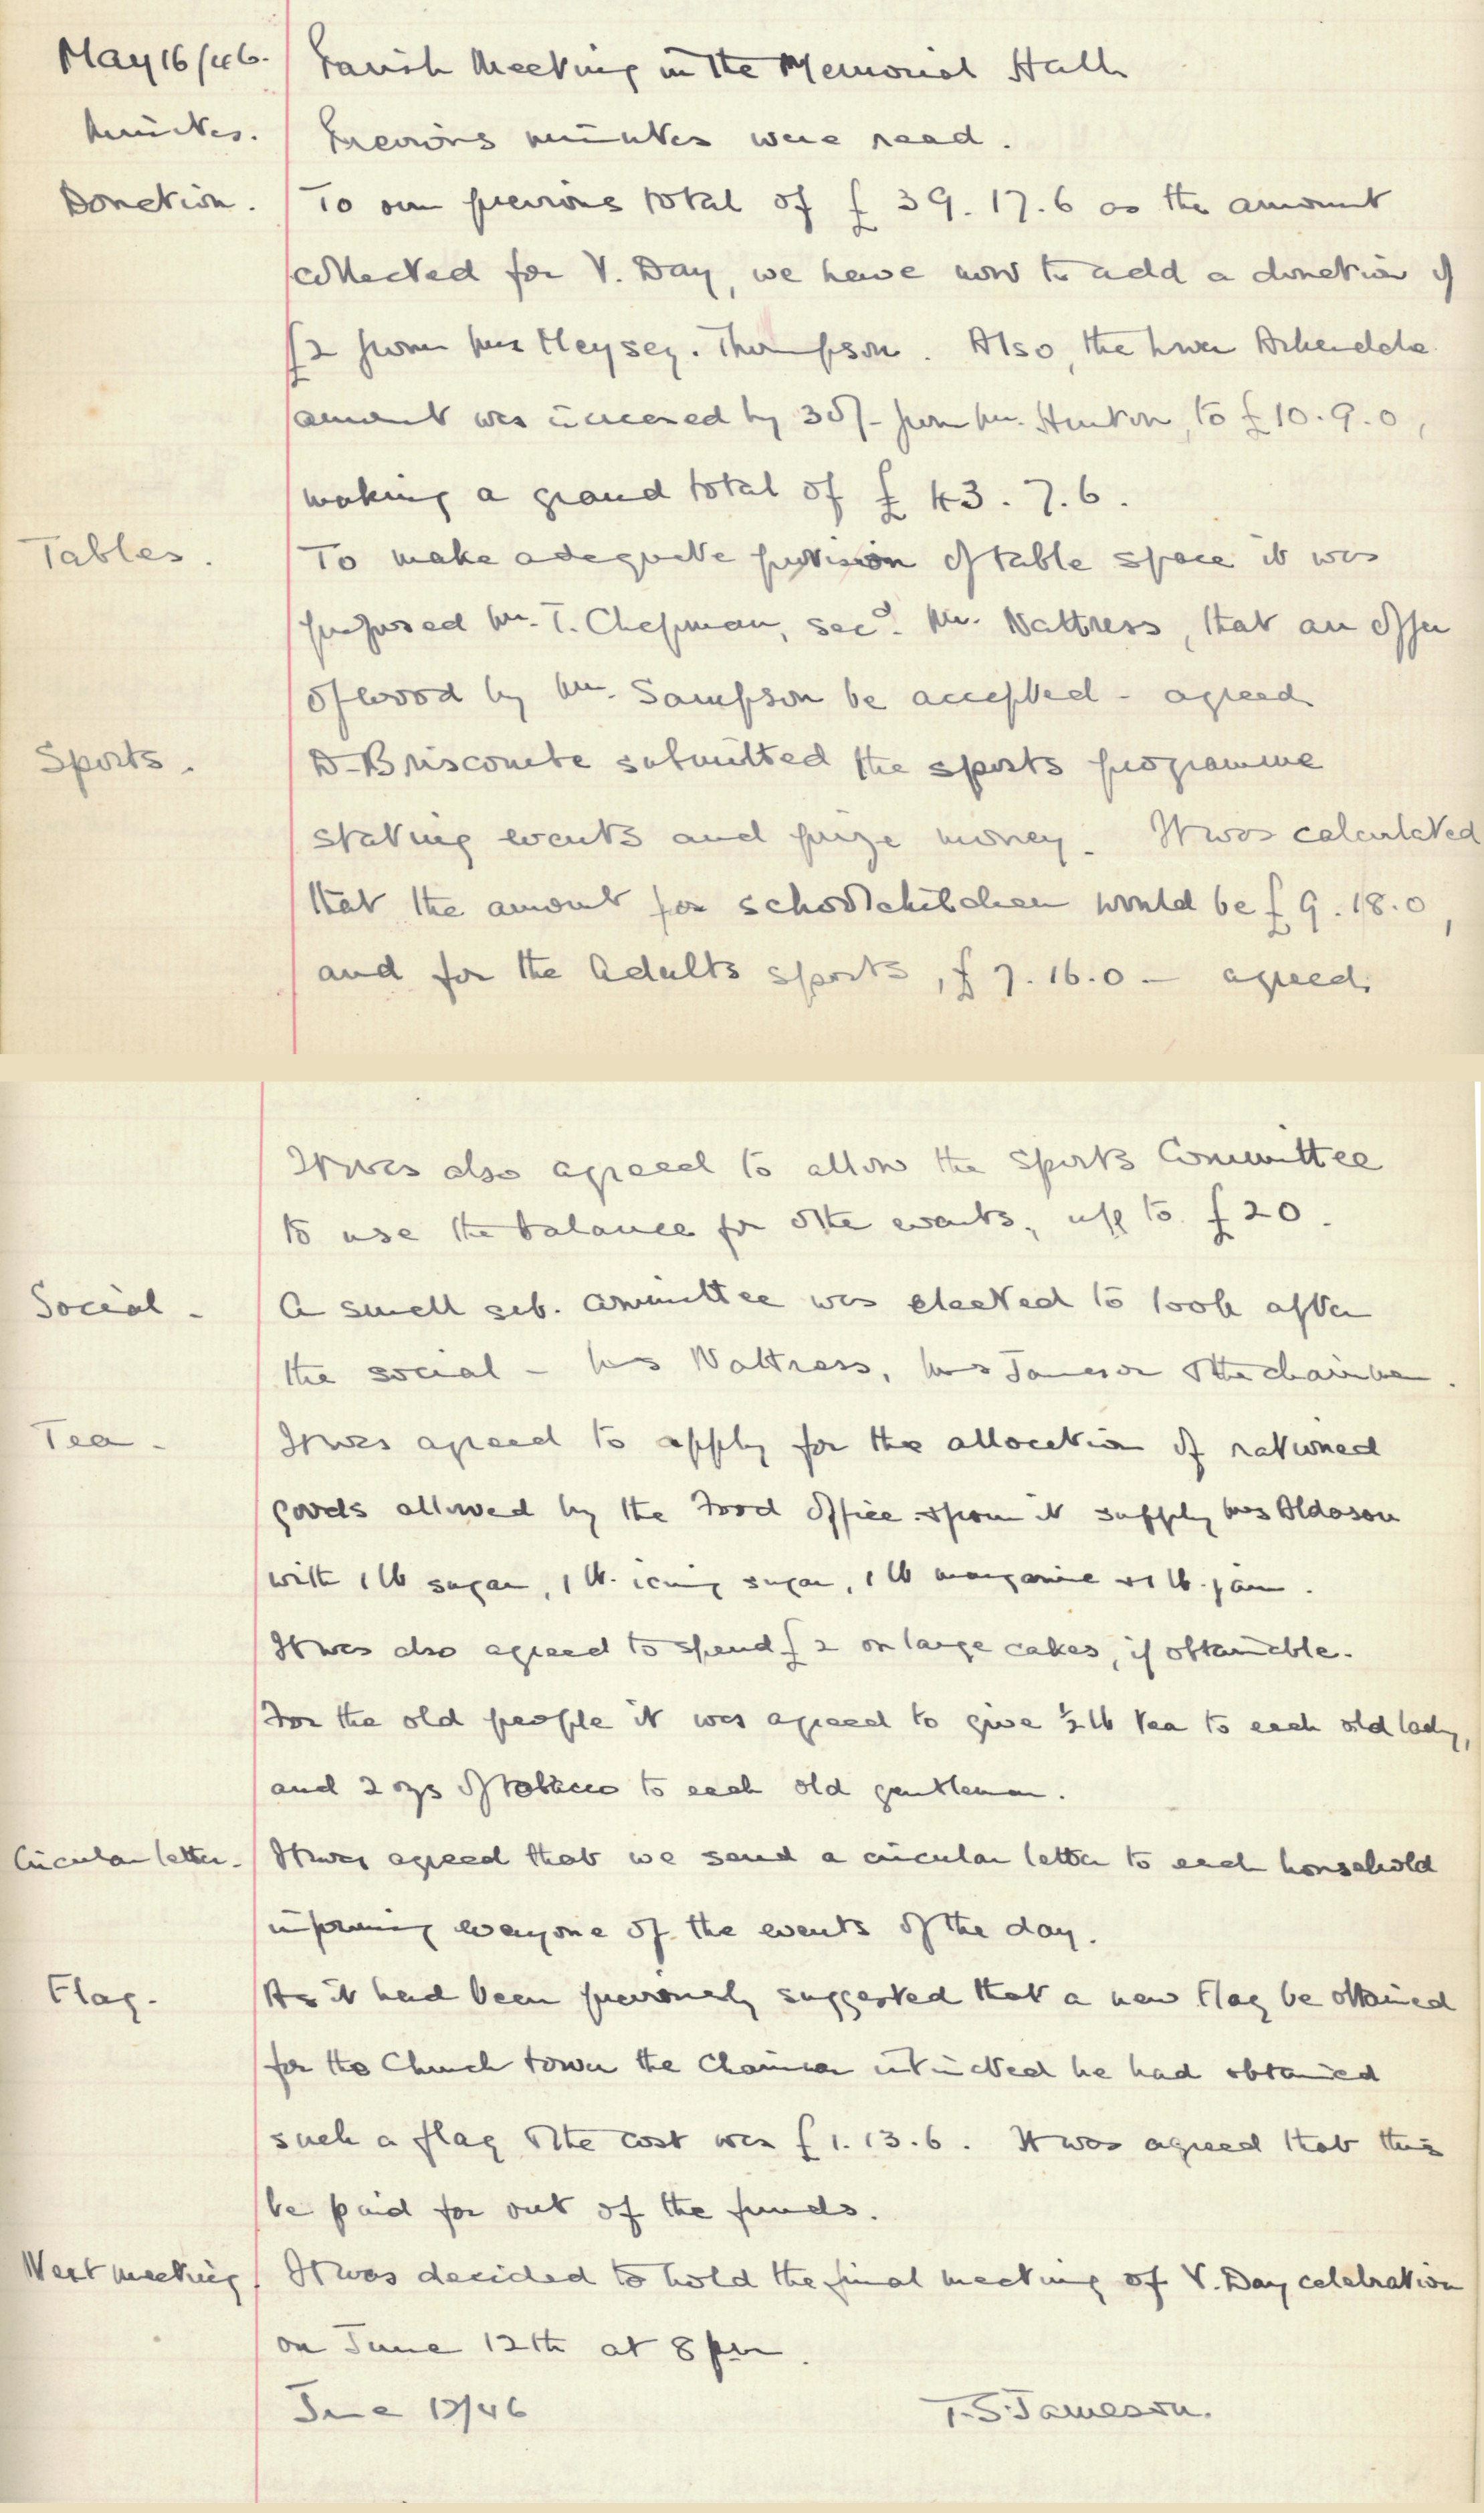 May 16/46. Parish Meeting in the Memorial Hall
Minutes. Previous minutes were read.
Donation. To our previous total of £39.17.6 as the amount
collected for V. Day, we have now to add a donation of
£2 from Mrs Meysey-Thompson. Also, the
amount was increased by 30/- from Mr. Hinton, to £10.9.0,
making a grand total of £43.7.6.
Tables. To make adequate provision of table space it was
proposed Mr. T. Chapman, secd. Mr. Wattress, that an offer
of wood by Mr. Sampson be accepted - agreed
Sports. D. Briscombe submitted the sports programme
stating events and prize money. It was calculated
that the amount for schoolchildren would be £9.18.0,
and for the Adults sports, £7.16.0 - agreed.
It was also agreed to allow the Sports Committee
to use the balance for other events, up to £20.
Social - A small sub. committee was elected to look after
the social - Mrs Wattress, Mrs Jameson & the chairman.
Tea - It was agreed to apply for the allocation of rationed
goods allowed by the Food Office & from it supply Mrs
with 1 lb sugar, 1 lb. icing sugar, 1 lb margarine & 1 lb. jam.
It was also agreed to spend £2 on large cakes, if obtainable.
For the old people it was agreed to give ½ lb tea to each old lady,
and 2 ozs of tobacco to each old gentleman.
Circular letter. It was agreed that we send a circular letter to each household
informing everyone of the events of the day.
Flag. As it had been previously suggested that a new flag be obtained
for the Church tower the Chairman intimated he had obtained
such a flag & the cost was £1.13.6. It was agreed that this
be paid for out of the funds.
Next meeting. It was decided to hold the final meeting of V. Day celebration
on June 12th at 8 pm.
June 12/46 T. S. Jameson.